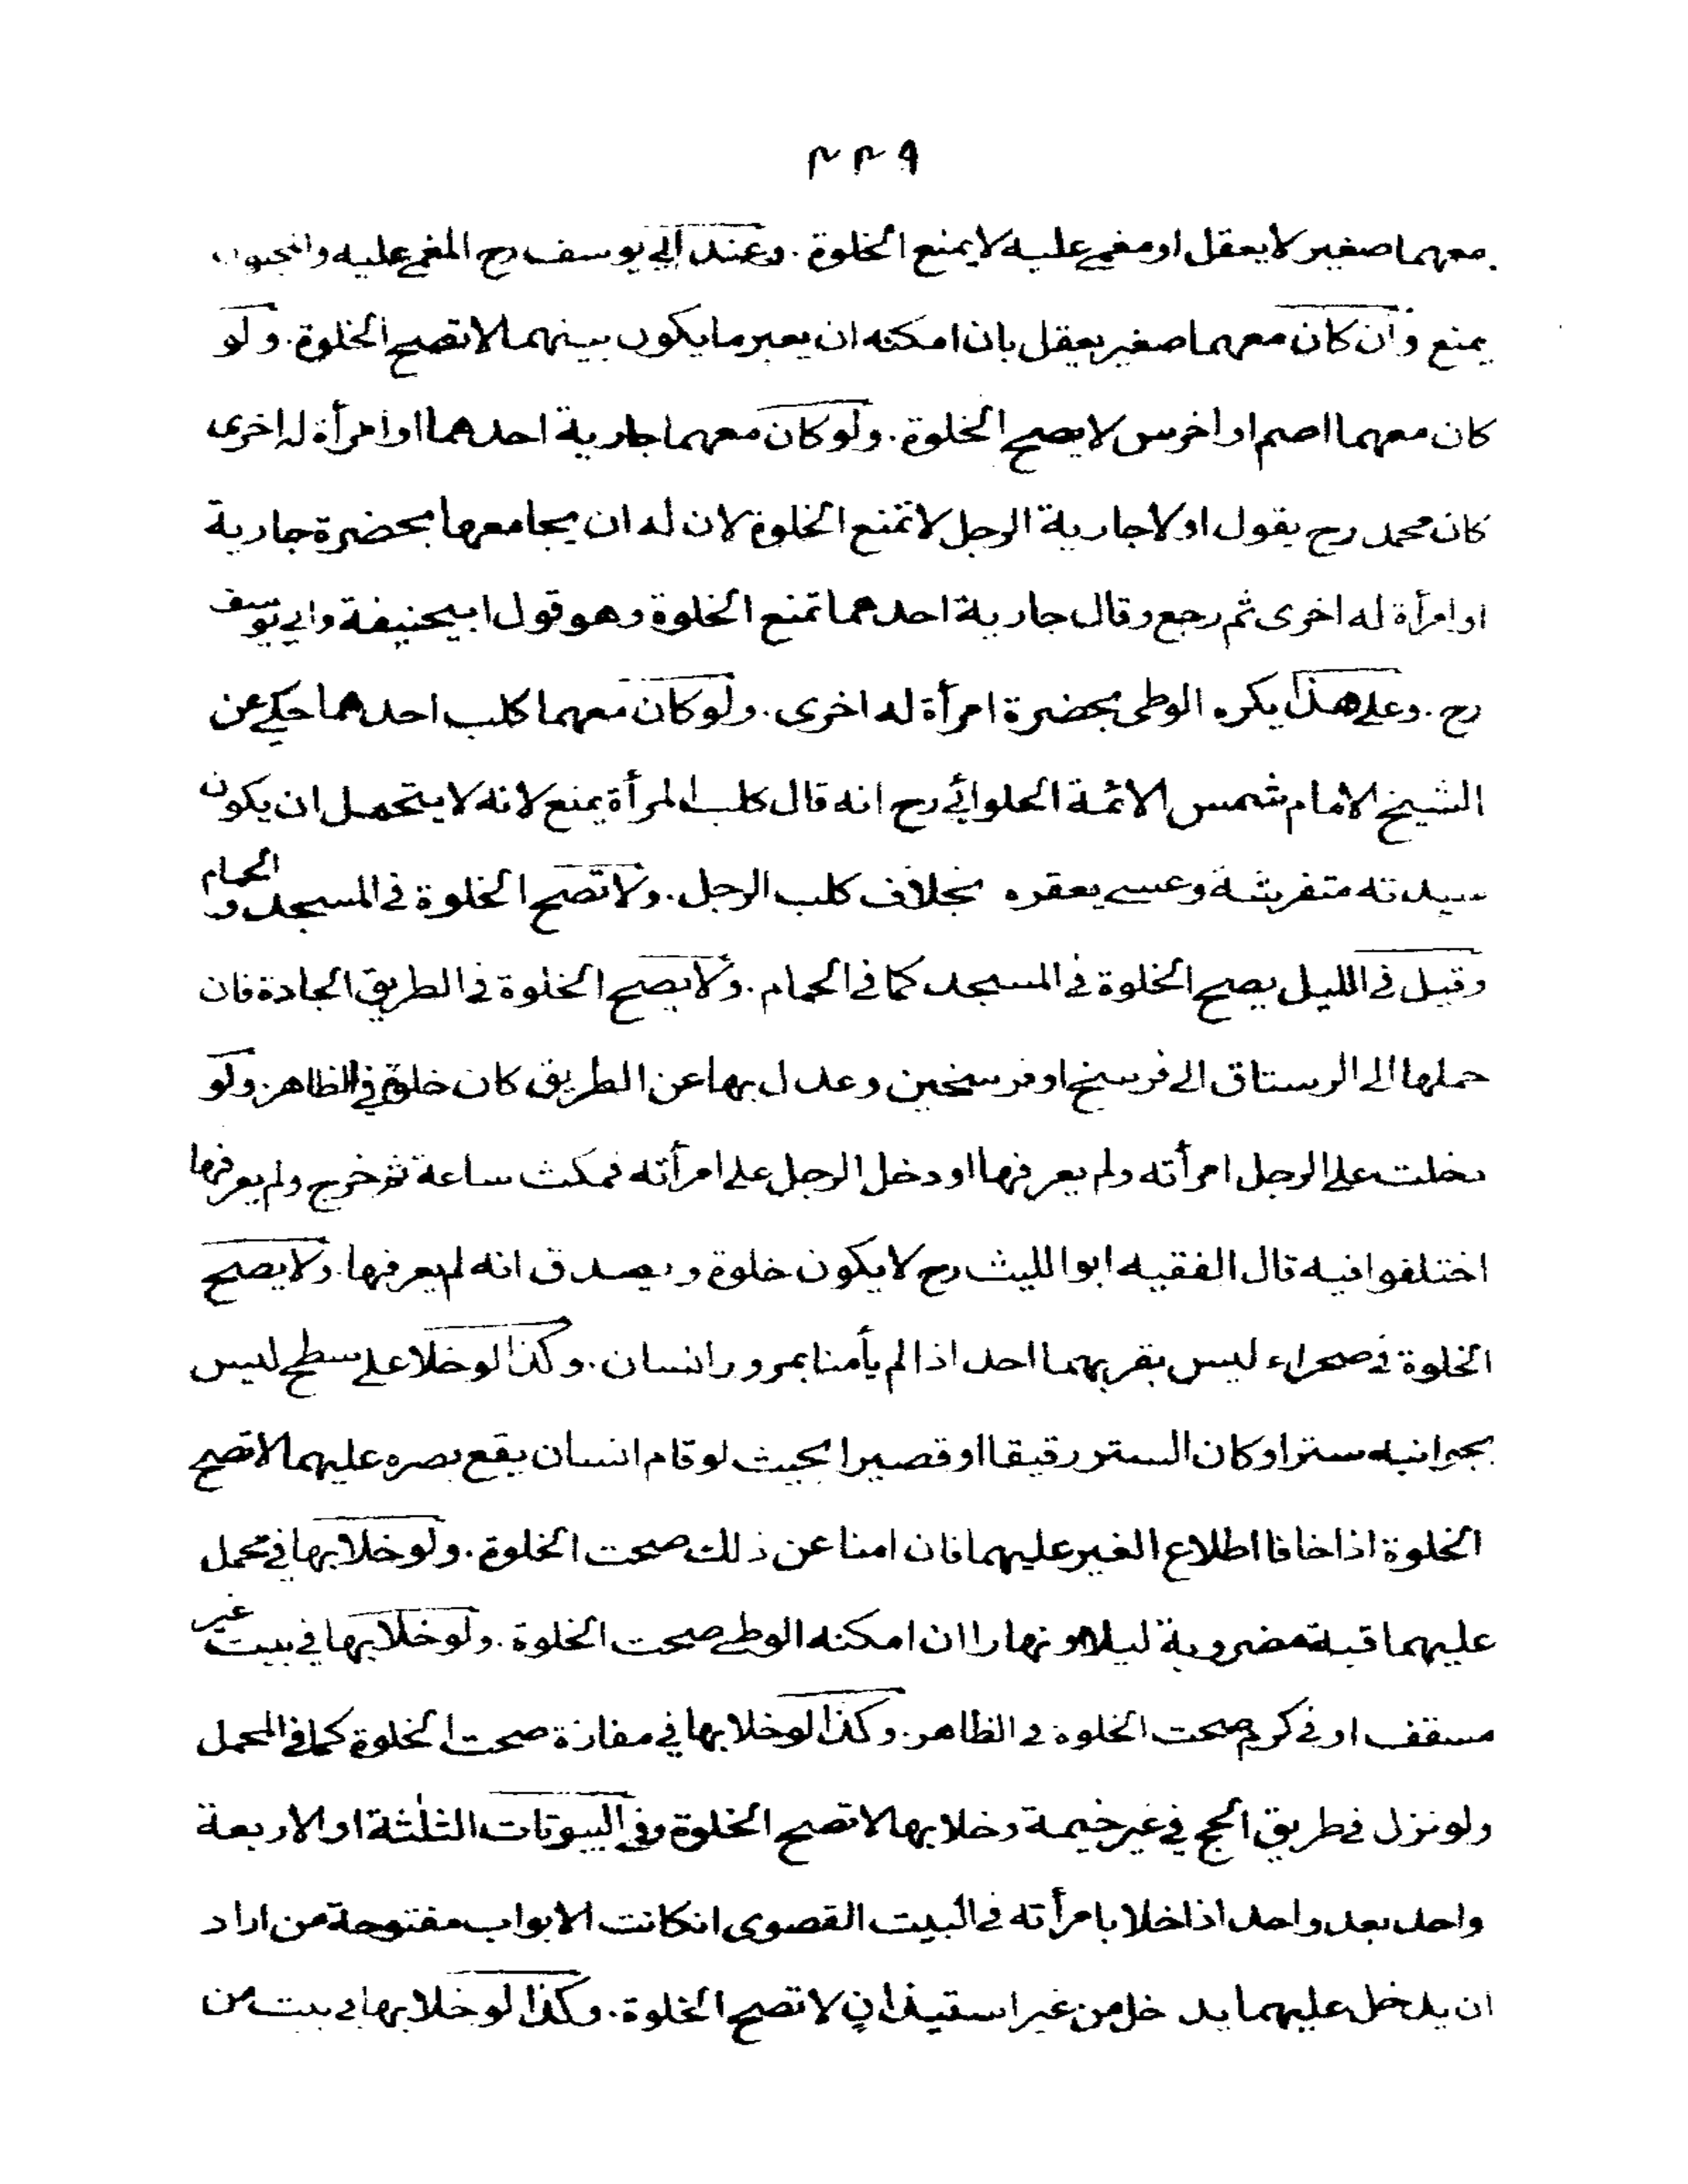 ٣٣٩
معهما صغير لا يعقل او مغمى عليه لا يمنع الخلوة . وعند ابي يوسف رح المغمى عليه والمجنون
يمنع وان كان معهما صغير يعقل بان امكنه ان يعبر ما يكون بينهما لا تصح الخلوة . ولو
كان معهما اصم او اخرس لا يصح الخلوة . ولو كان معهما جارية احدهما او امرأة له اخرى
كان محمد رح يقول اولا جارية الرجل لا تمنع الخلوة لان له ان يجامعها بحضرة جارية
او امرأة له اخرى ثم رجع وقال جارية احدهما تمنع الخلوة وهو قول ابيحنيفة وابي يوسف
رح . وعلى هذا يكره الوطى بحضرة امرأة له اخرى . ولو كان معهما كلب احدهما حكي عن
الشيخ الامام شمس الائمة الحلوائي رح انه قال كلب المرأة يمنع لانه لا يتحمل ان يكون
سيدته متفرشة وعسى يعقره بخلاف كلب الرجل . ولا تصح الخلوة في المسجد والحمام
وقيل في الليل يصح الخلوة في المسجد كما في الحمام . ولا يصح الخلوة في الطريق الجادة فان
حملها الى الرستاق الى فرسخ او فرسخين وعدل بها عن الطريق كان خلوة في الظاهر . ولو
دخلت على الرجل امرأته ولم يعرفها او دخل الرجل على امرأته فمكث ساعة ثم خرج ولم يعرفها
اختلفوا فيه قال الفقيه ابو الليث رح لا يكون خلوة ويصدق انه لم يعرفها . ولا يصح
الخلوة في صحراء ليس بقربهما احد اذا لم يأمنا بمرور انسان . وكذا لو خلا على سطح ليس
بجوانبه ستر او كان الستر رقيقا او قصيرا بحيث لو قام انسان يقع بصره عليهما لا تصح
الخلوة اذا خافا اطلاع الغير عليهما فان امنا عن ذلك صحت الخلوة . ولو خلا بها في محمل
عليهما قبة مضروبة ليلا او نهارا ان امكنه الوطى صحت الخلوة . ولو خلا بها في بيت غير
مسقف او في كرم صحت الخلوة في الظاهر . وكذا لو خلا بها في مفازة صحت الخلوة كما في المحمل
ولو نزل في طريق الحج في غير خيمة وخلا بها لا تصح الخلوة وفي البيوتات الثلثة او الاربعة
واحد بعد واحد اذا خلا بامرأته في البيت القصوى انكانت الابواب مفتوحة من اراد
ان يدخل عليهما يدخل من غير استيذان لا تصح الخلوة . وكذا لو خلا بها في بيت من